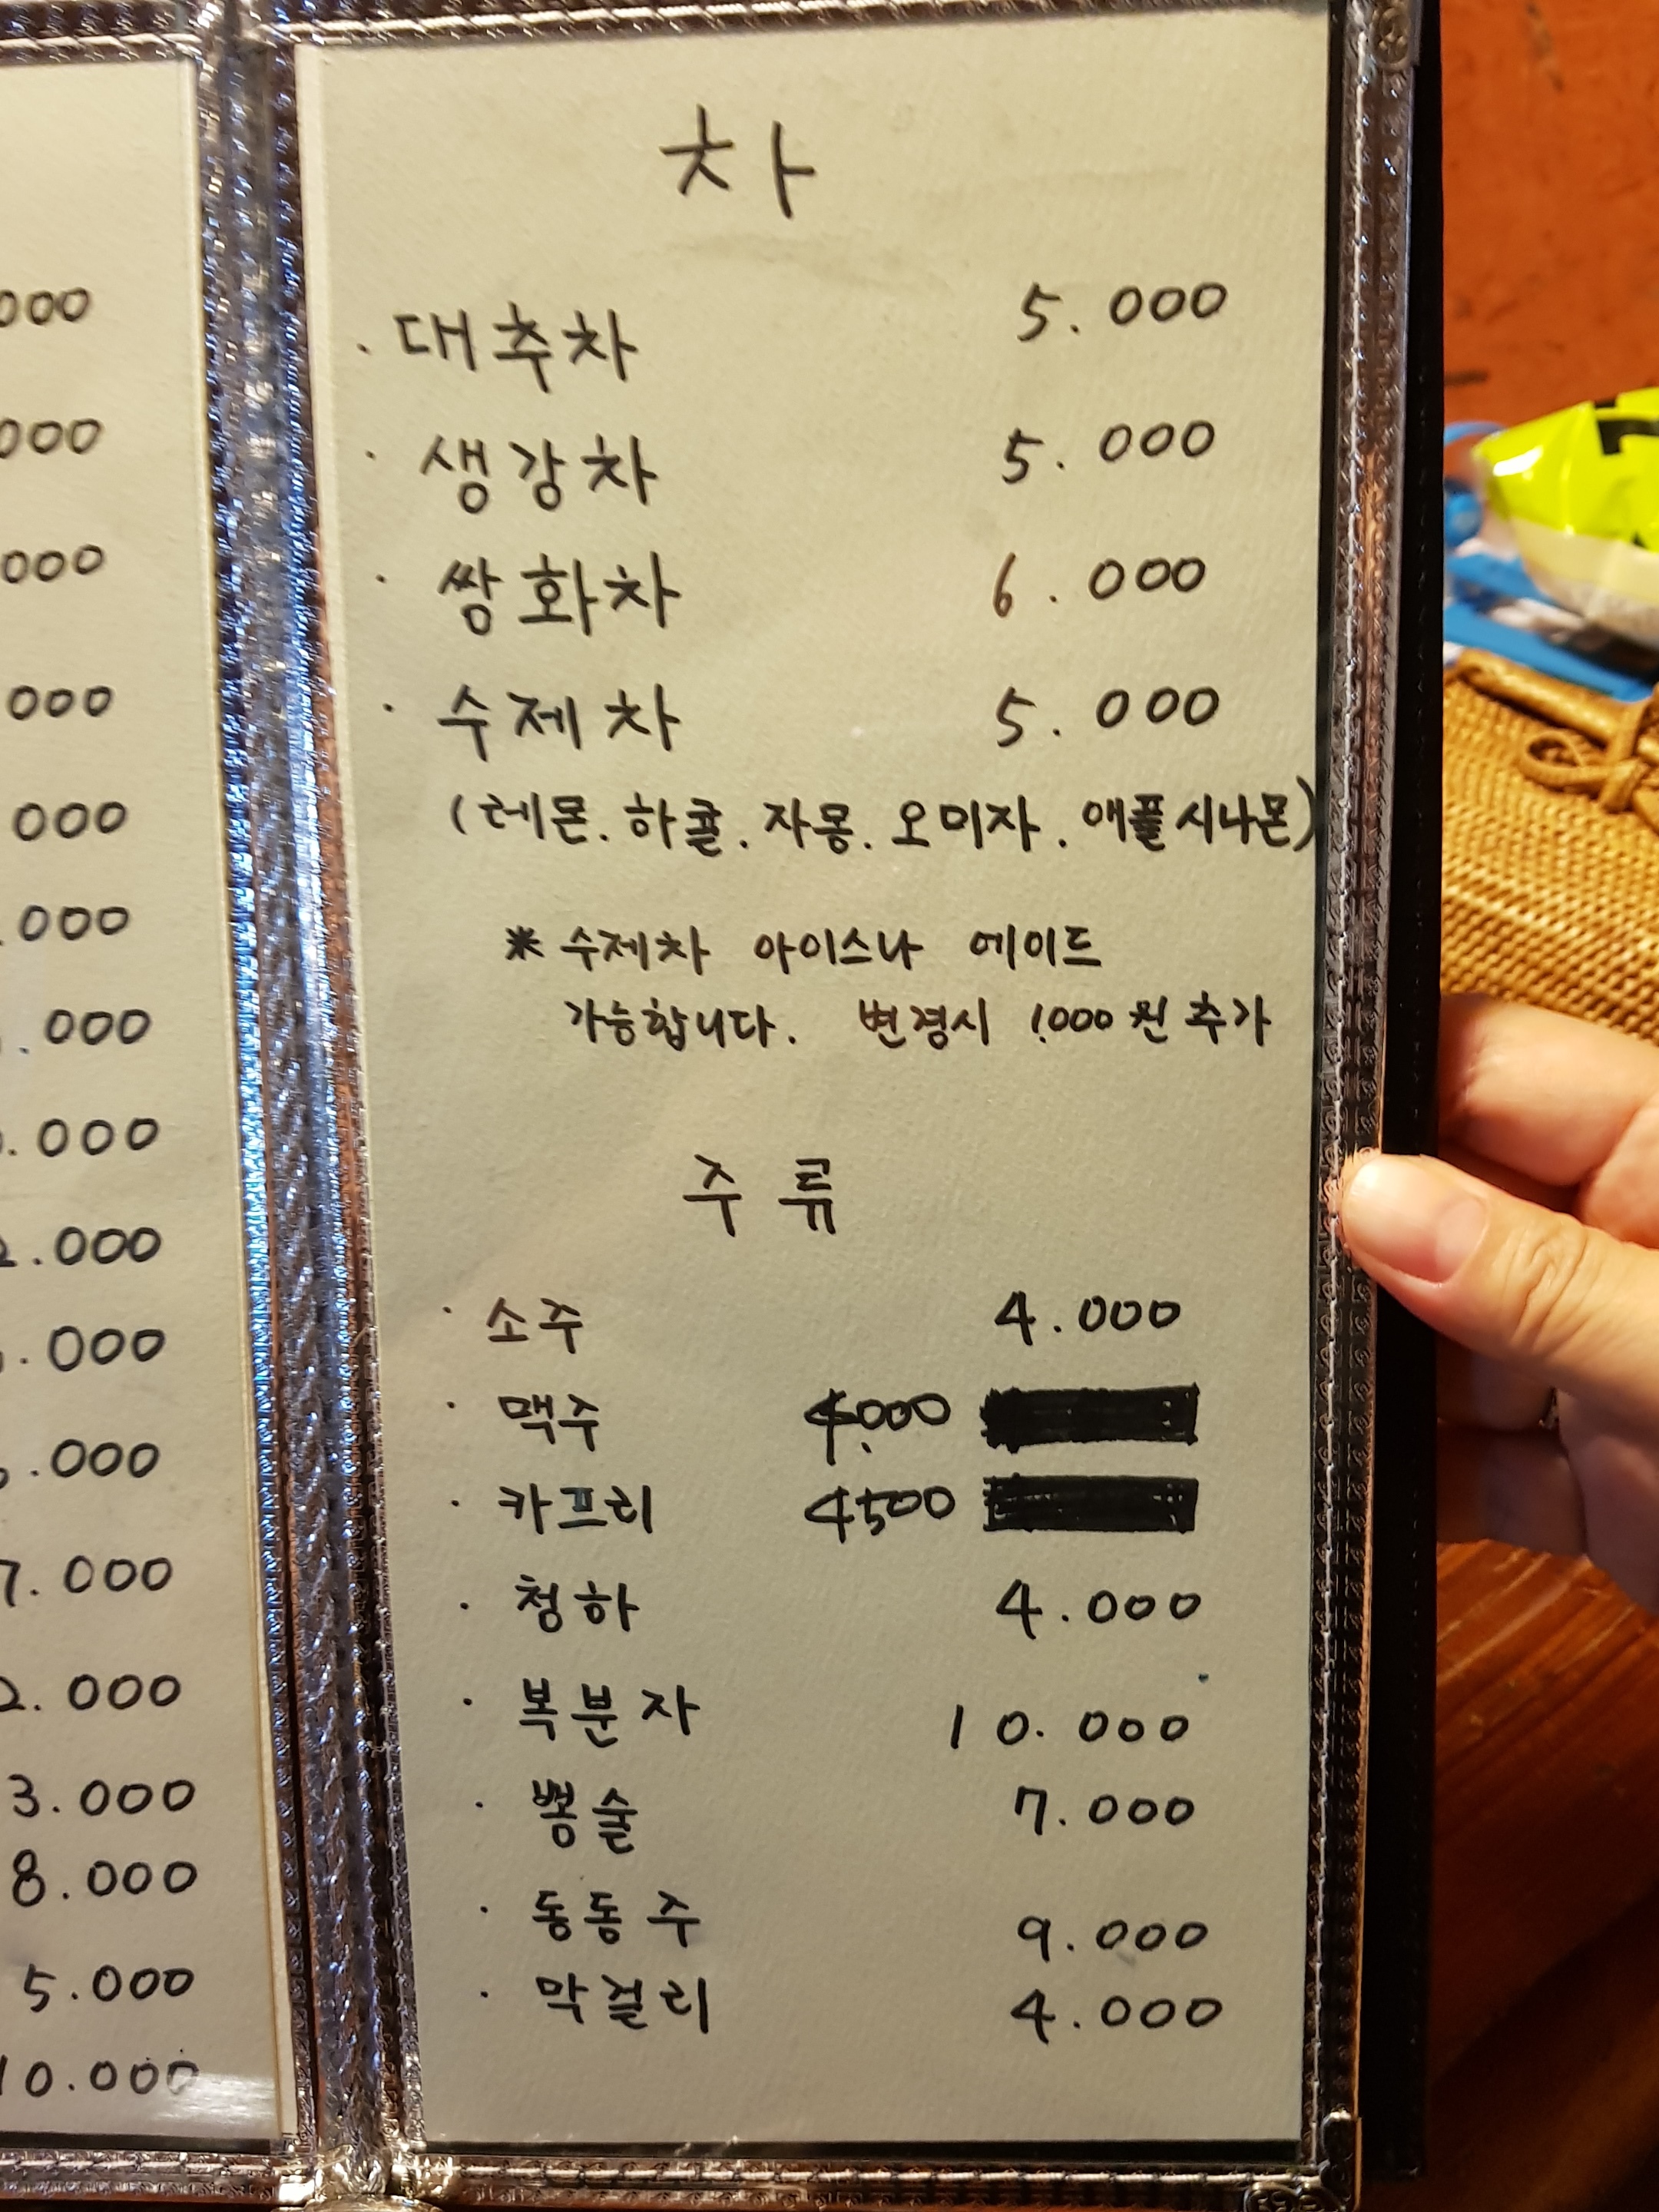 차
· 대추차 5.000
· 생강차 5.000
· 쌍화차 6.000
· 수제차 5.000
(레몬. 하귤. 자몽. 오미자. 애플시나몬)
* 수제차 아이스나 에이드
가능합니다. 변경시 1.000원 추가
주류
· 소주 4.000
· 맥주
· 카프리 4500
· 청하 4.000
· 복분자 10.000
· 뽕술 7.000
· 동동주 9.000
· 막걸리 4.000
000
000
000
000
000
.000
.000
.000
2.000
.000
.000
7.000
2.000
3.000
8.000
5.000
10.000